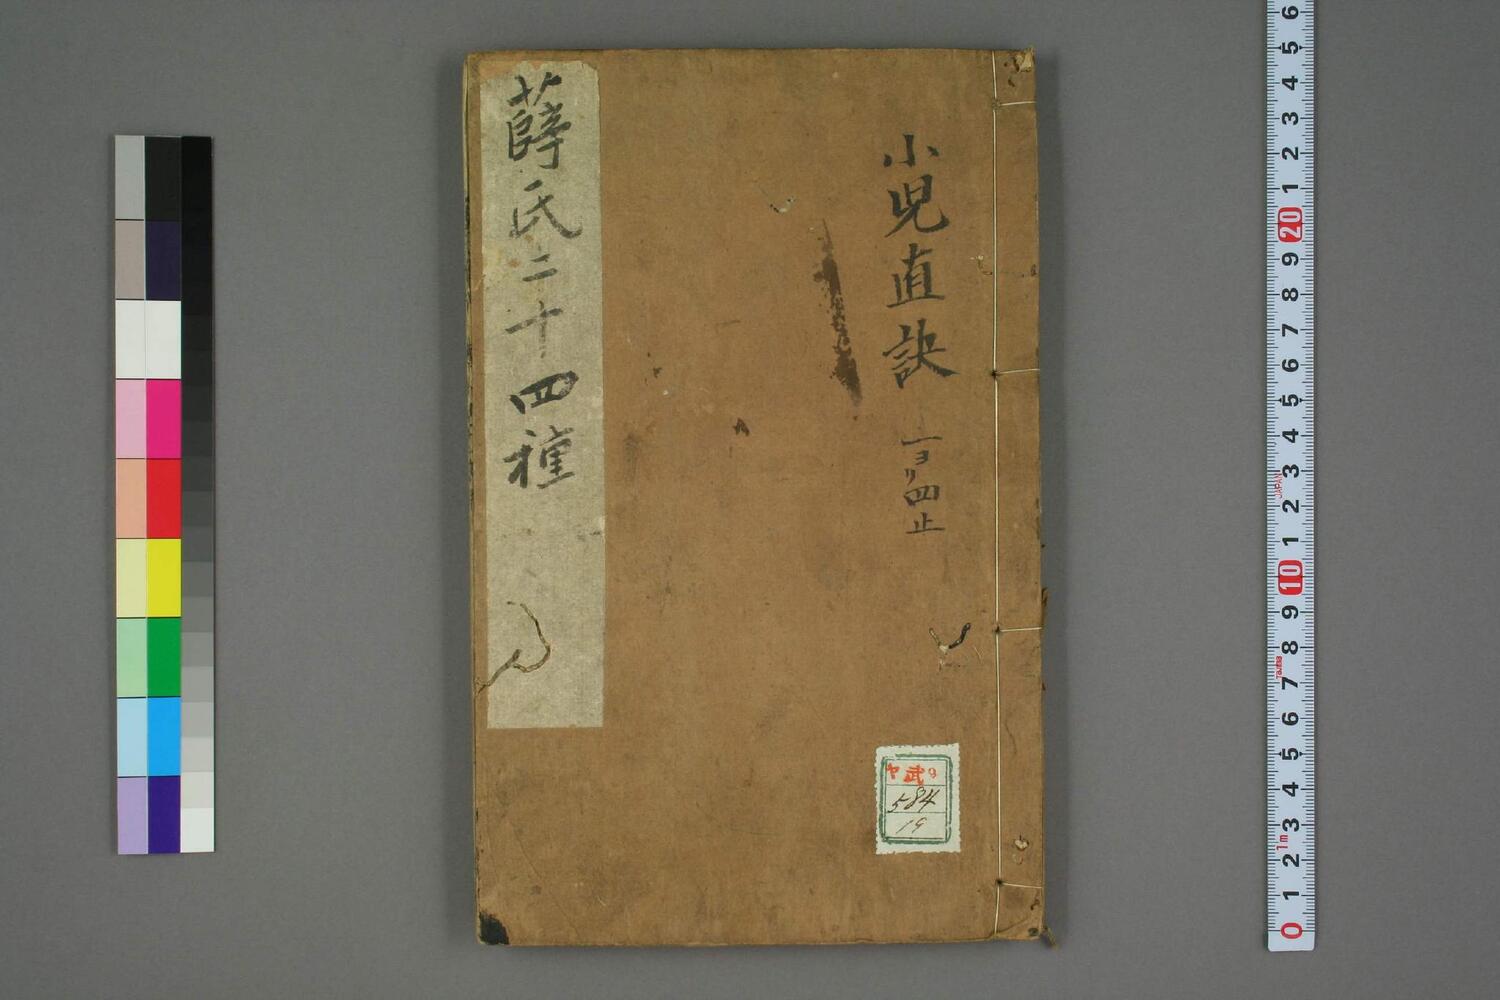 小児直訣
一ヨリ四止
薛氏二十四種
ヤ武9
584
19
6
5
4
3
2
1
20
9
8
7
6
5
4
3
2
1
10
9
8
7
6
5
4
3
2
1
0
JAPAN
Tajima
1m